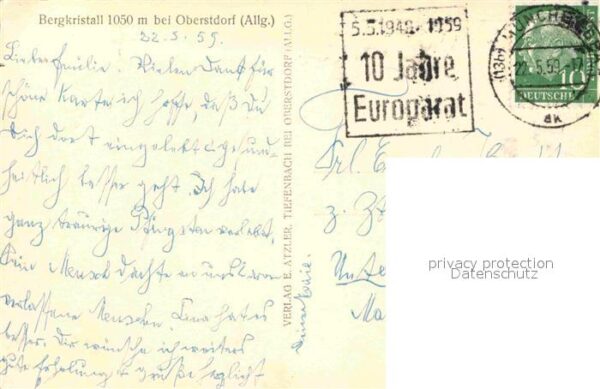 Bergkristall 1050 m bei Oberstdorf (Allg.)
22.5.59.
Liebe Emilie. Vielen Dank für
schöne Karte ich hoffe, daß Du
Dich dort eingelebt gesund-
heitlich besser geht. Ich habe
ganz traurige Pfingsten verlebt,
Kein Mensch dachte an uns
verlassene Menschen. Lina hat es
besser. Dir wünsche ich weiters
gute Erholung & grüße herzlich
VERLAG E. ATZLER, TIEFENBACH BEI OBERSTDORF (ALLG.)
5.5.1949-1959
10 Jahre
Europarat
MÜNCHEN
22.-5.59.-17
ak
10
DEUTSCHE
Frl.
z. Zt
Unte
Ma
privacy protection
Datenschutz